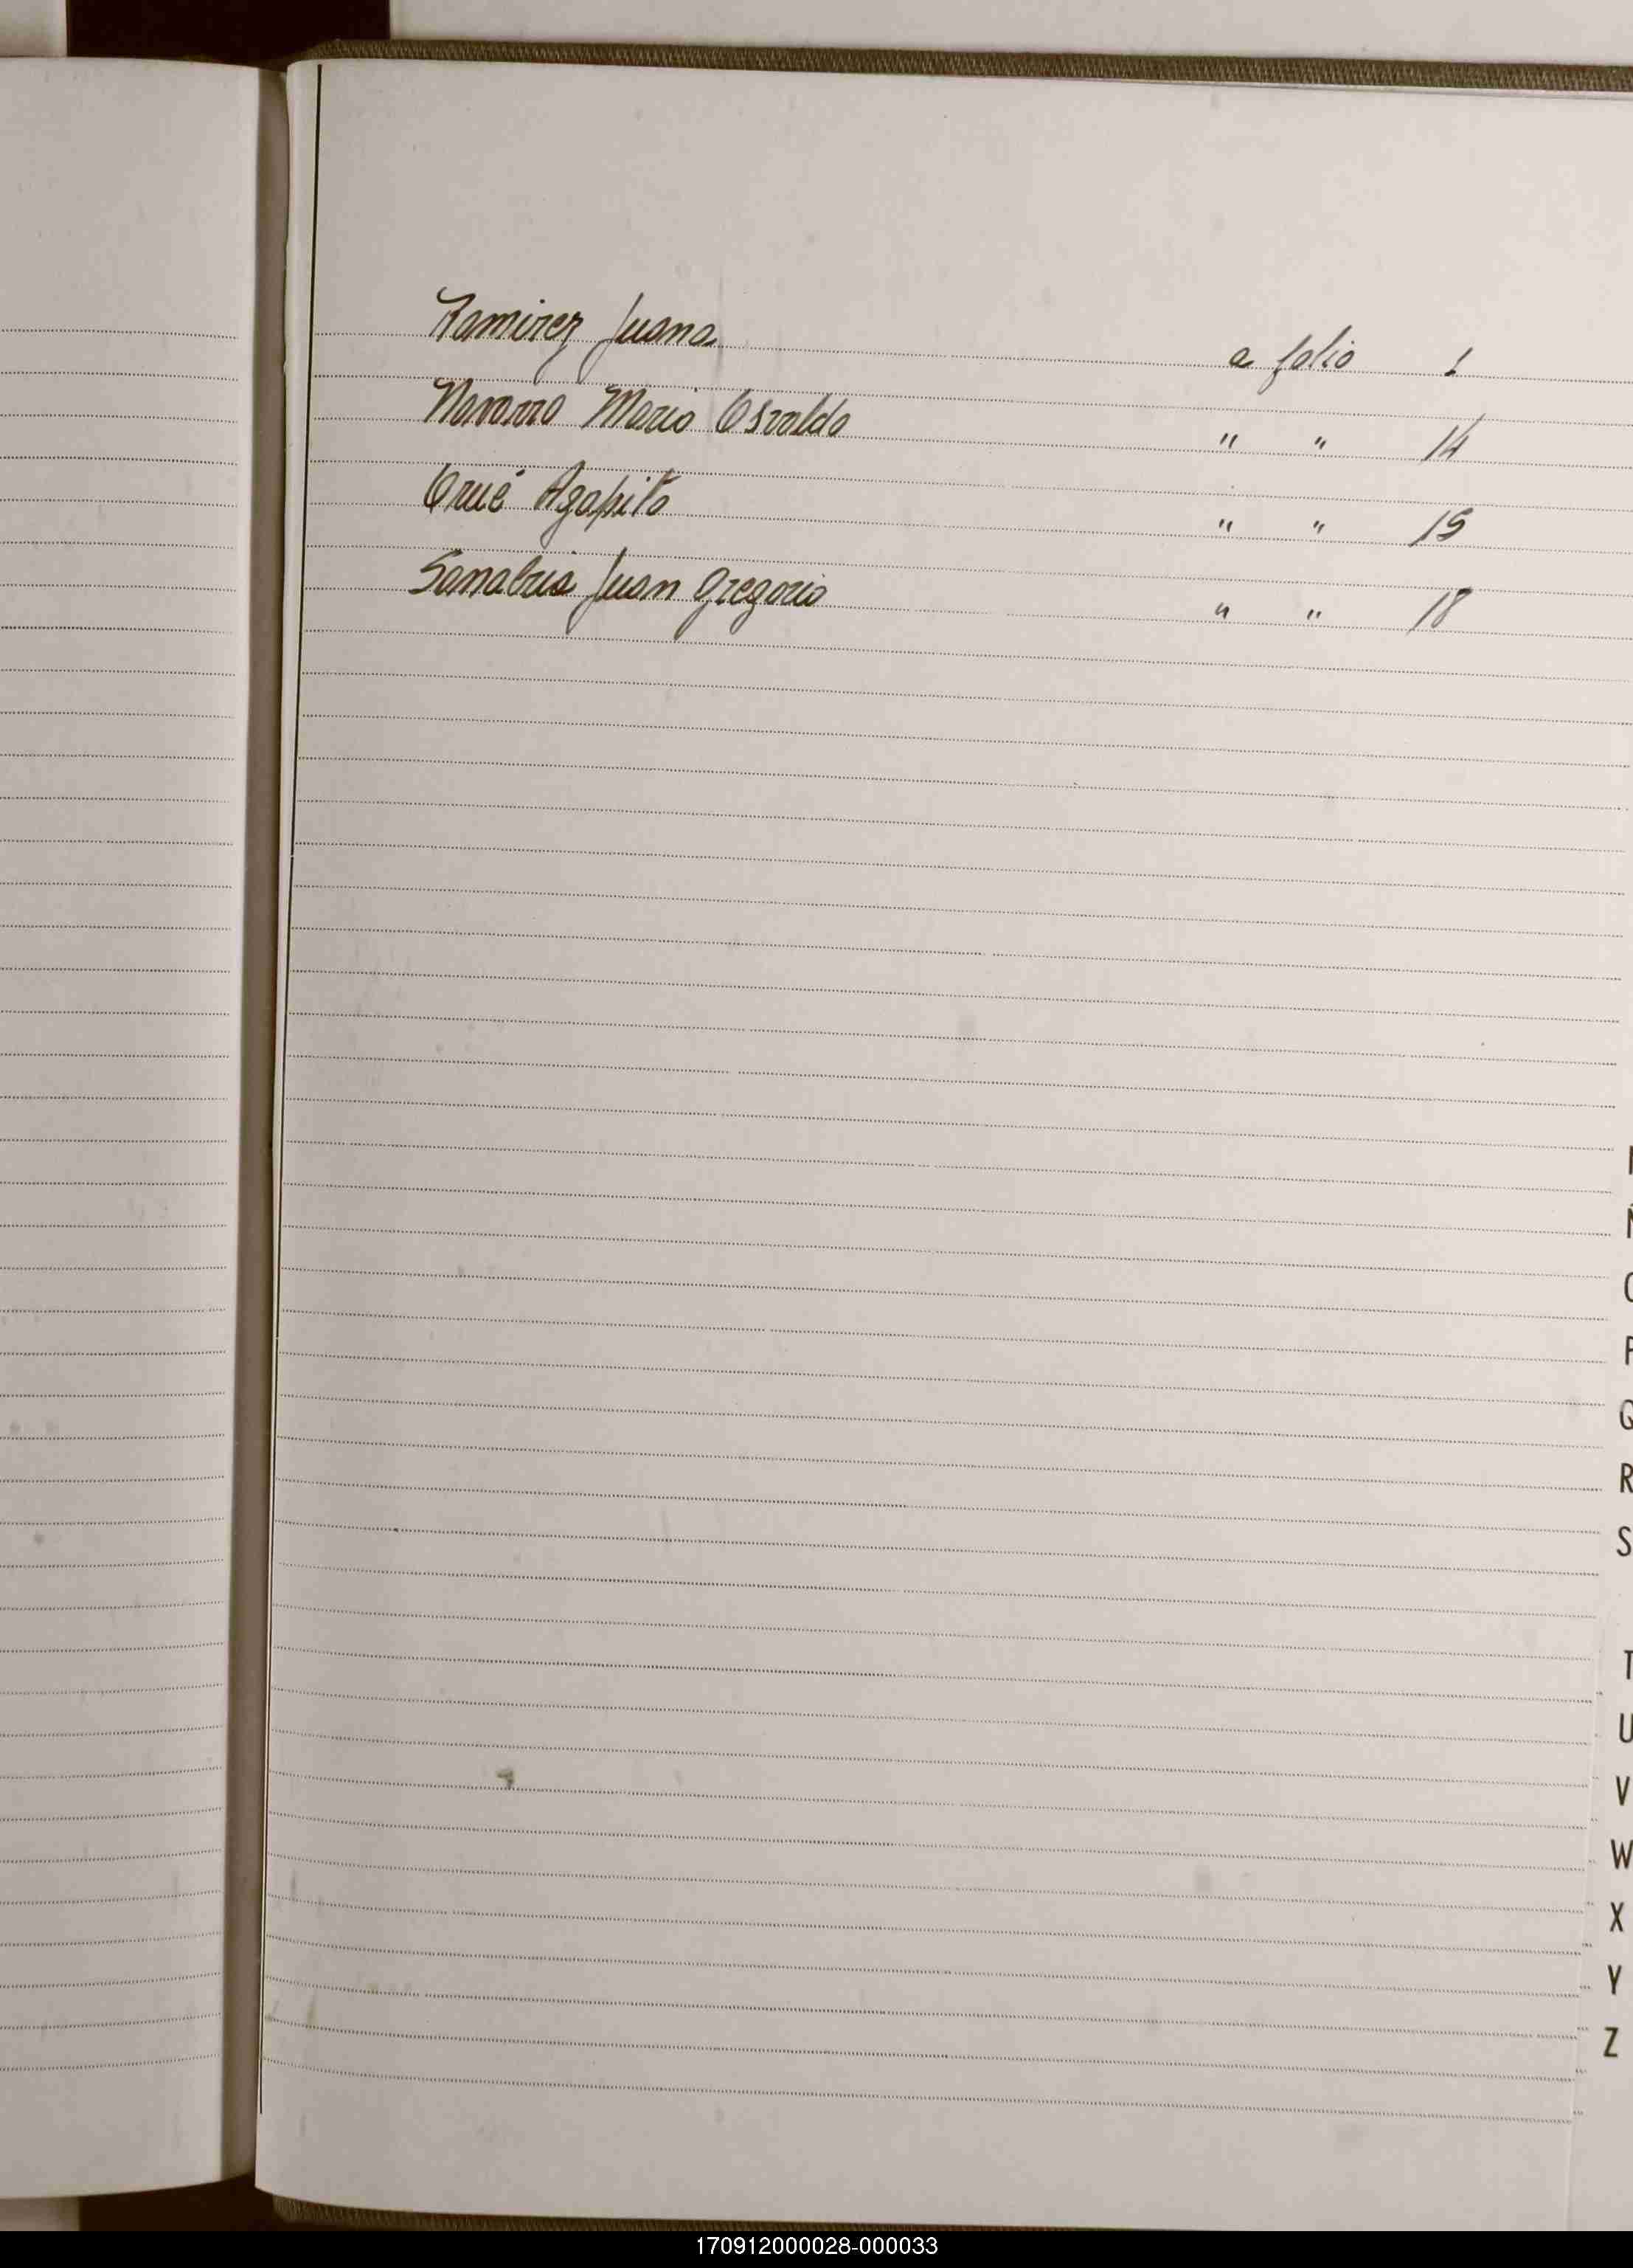 Ramirez Juana a folio 1
Navarro Mario Osvaldo " " 14
Orué Agapito " " 15
Sanabria Juan Gregorio " " 18
Ñ
O
P
Q
R
S
T
U
V
W
X
Y
Z
170912000028-000033